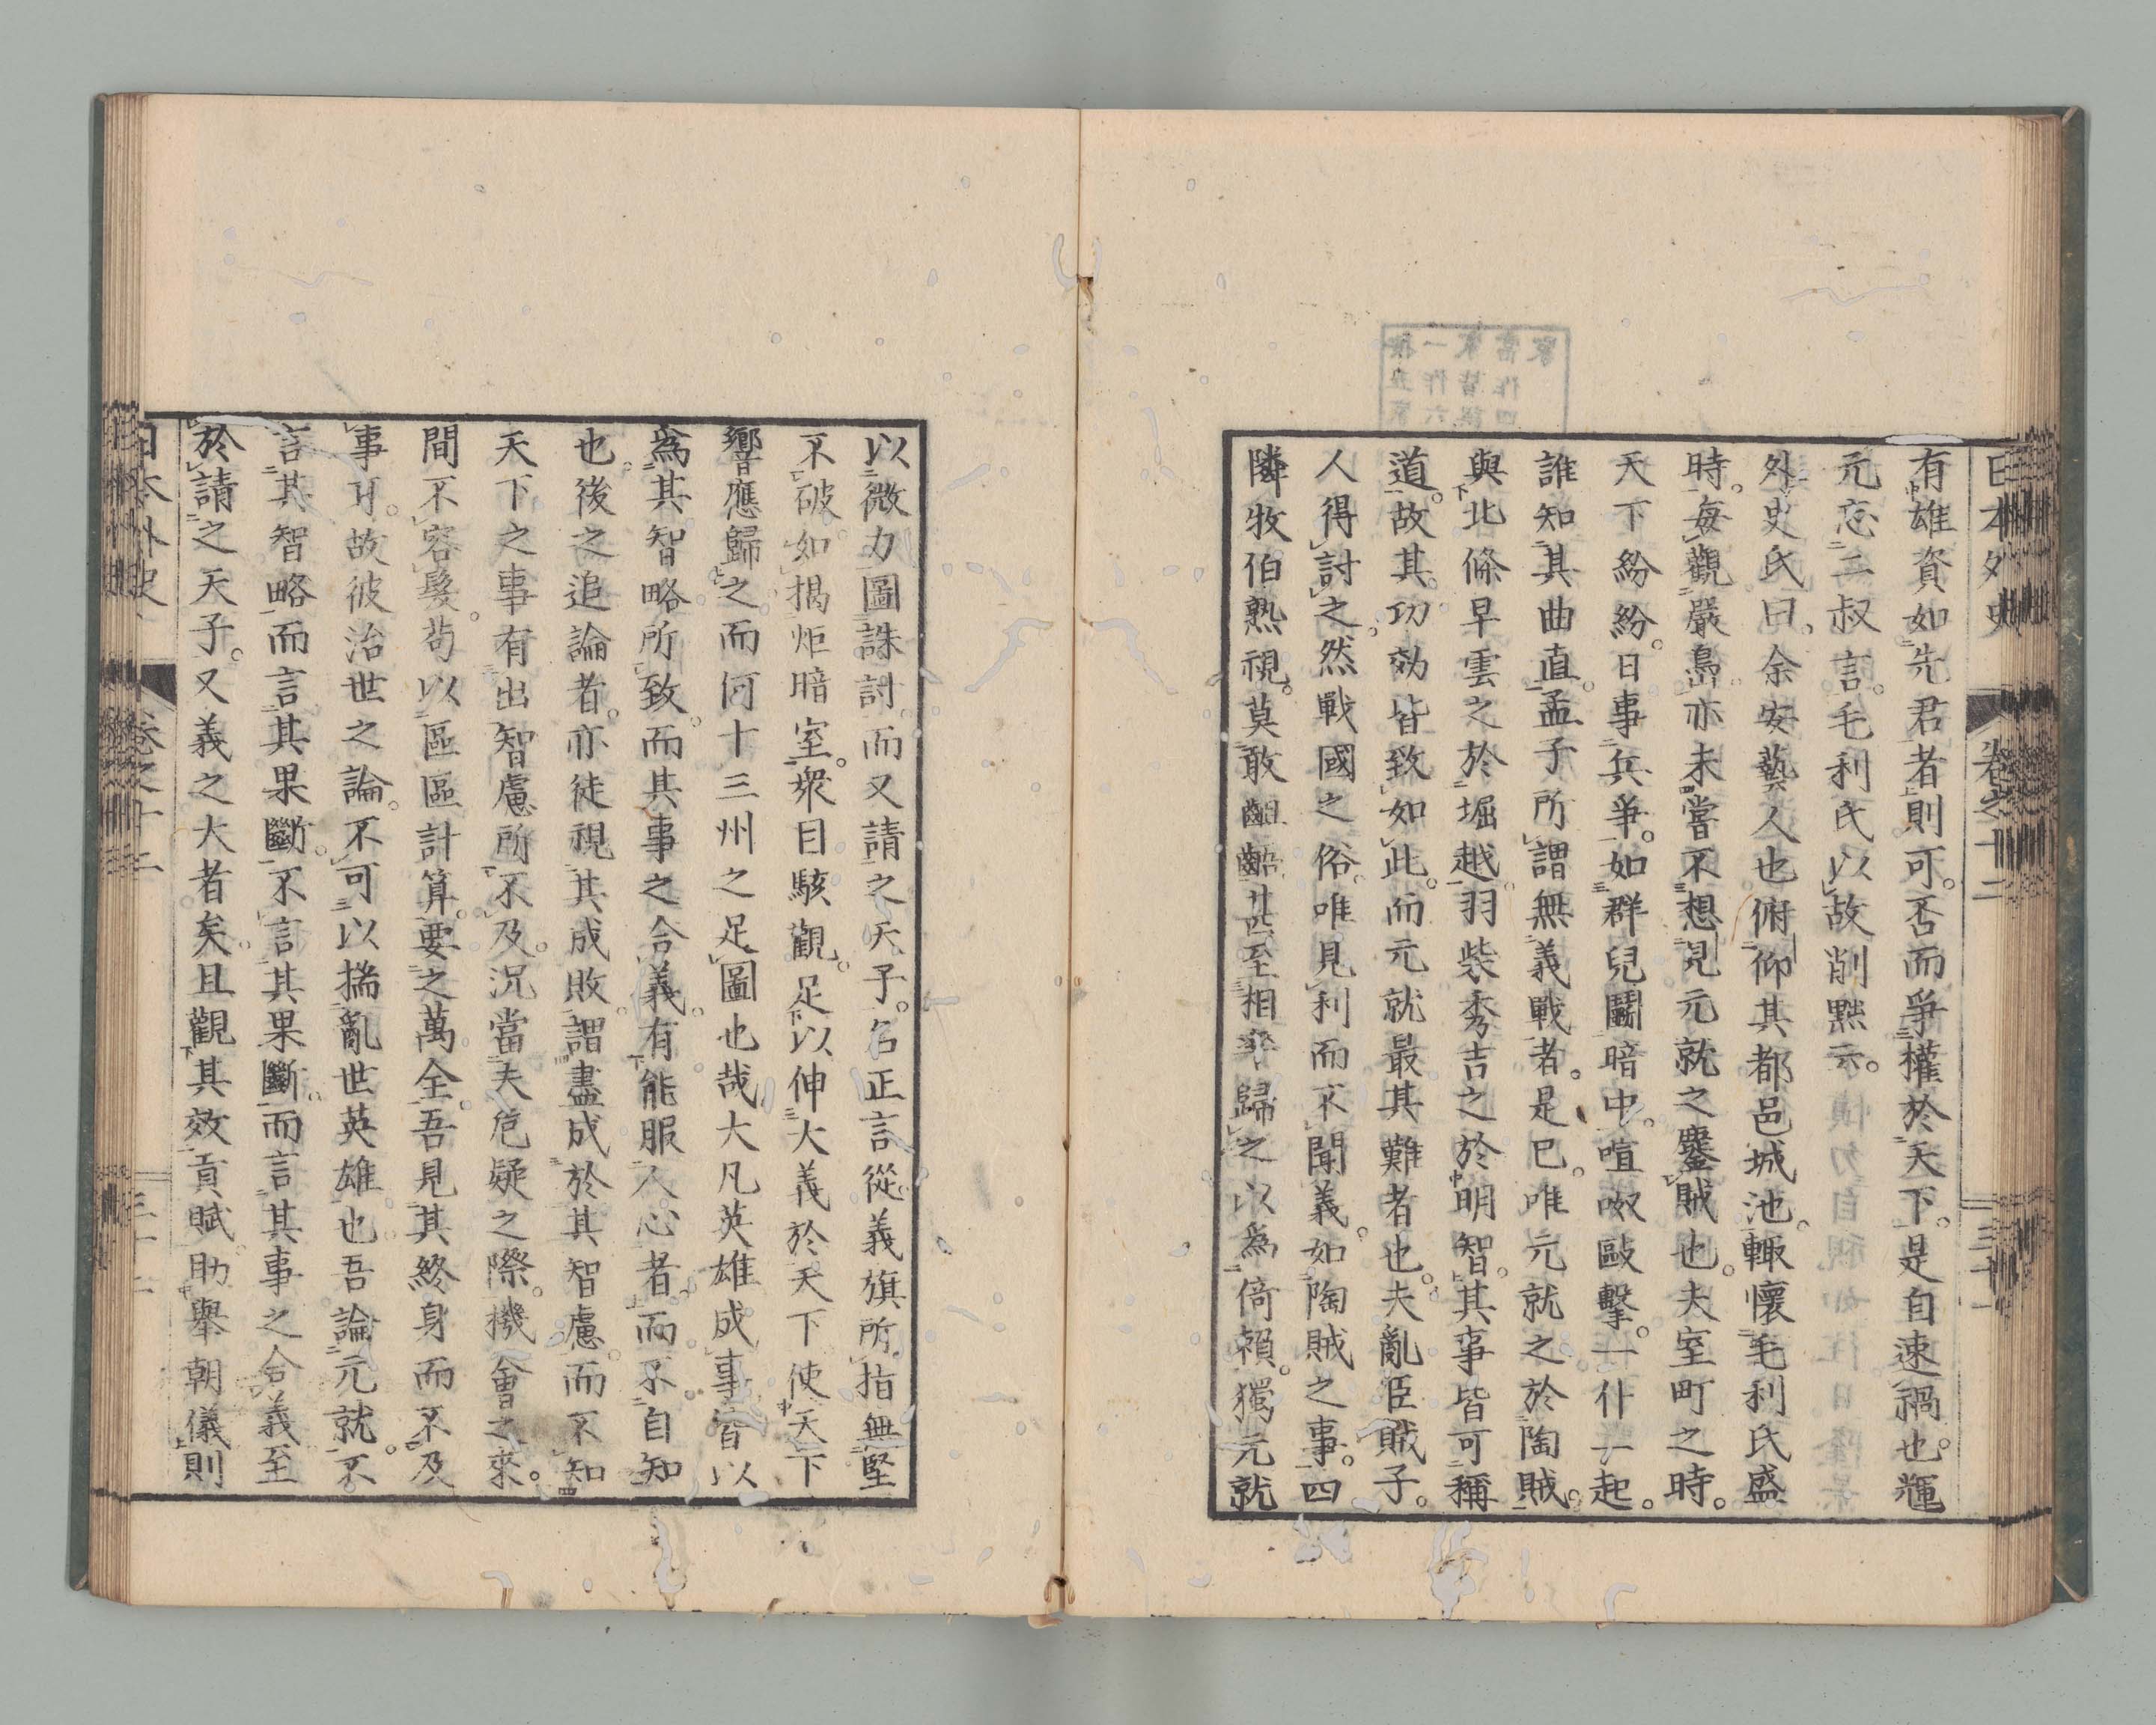 日本外史
卷之十二
三十一
有雄資如先君者則可。否而爭權於天下。是自速禍也。輝
元忘二叔言。毛利氏以故削黜云。
外史氏曰。余安藝人也俯仰其都邑城池。輙懷毛利氏盛
時。每觀嚴島亦未嘗不想見元就之鏖賊也。夫室町之時。
天下紛紛。日事兵爭。如群兒鬭暗中。喧呶毆擊。一仆一起。
誰知其曲直。孟子所謂無義戰者。是已。唯元就之於陶賊。
與北條早雲之於堀越。羽柴秀吉之於明智。其事皆可稱
道。故其。功効皆致如此。而元就最其難者也。夫亂臣賊子。
人得討之。然戰國之俗。唯見利而不聞義。如陶賊之事。四
隣牧伯熟視。莫敢齟齬。甚至相率歸之以為倚賴。獨元就
以微力圖誅討。而又請之天子。名正言從。義旗所指無堅
不破。如揭炬暗室。衆目駭觀。足以伸大義於天下使天下
響應歸之。而何十三州之足圖也哉。大凡英雄成事皆以
爲其智略所致。而其事之合義。有能服人心者。而不自知
也。後之追論者。亦徒視其成敗。謂盡成於其智慮。而不知
天下之事有出智慮所不及。況當夫危疑之際。機會之來。
間不容髮。苟以區區計算。要之萬全。吾見其終身而不及
事耳。故彼治世之論。不可以揣亂世英雄也。吾論元就。不
言其智略而言其果斷。不言其果斷。而言其事之合義。至
於請之天子。又義之大者矣。且觀其效貢賦助舉朝儀則
日本外史
卷之十二
三十二